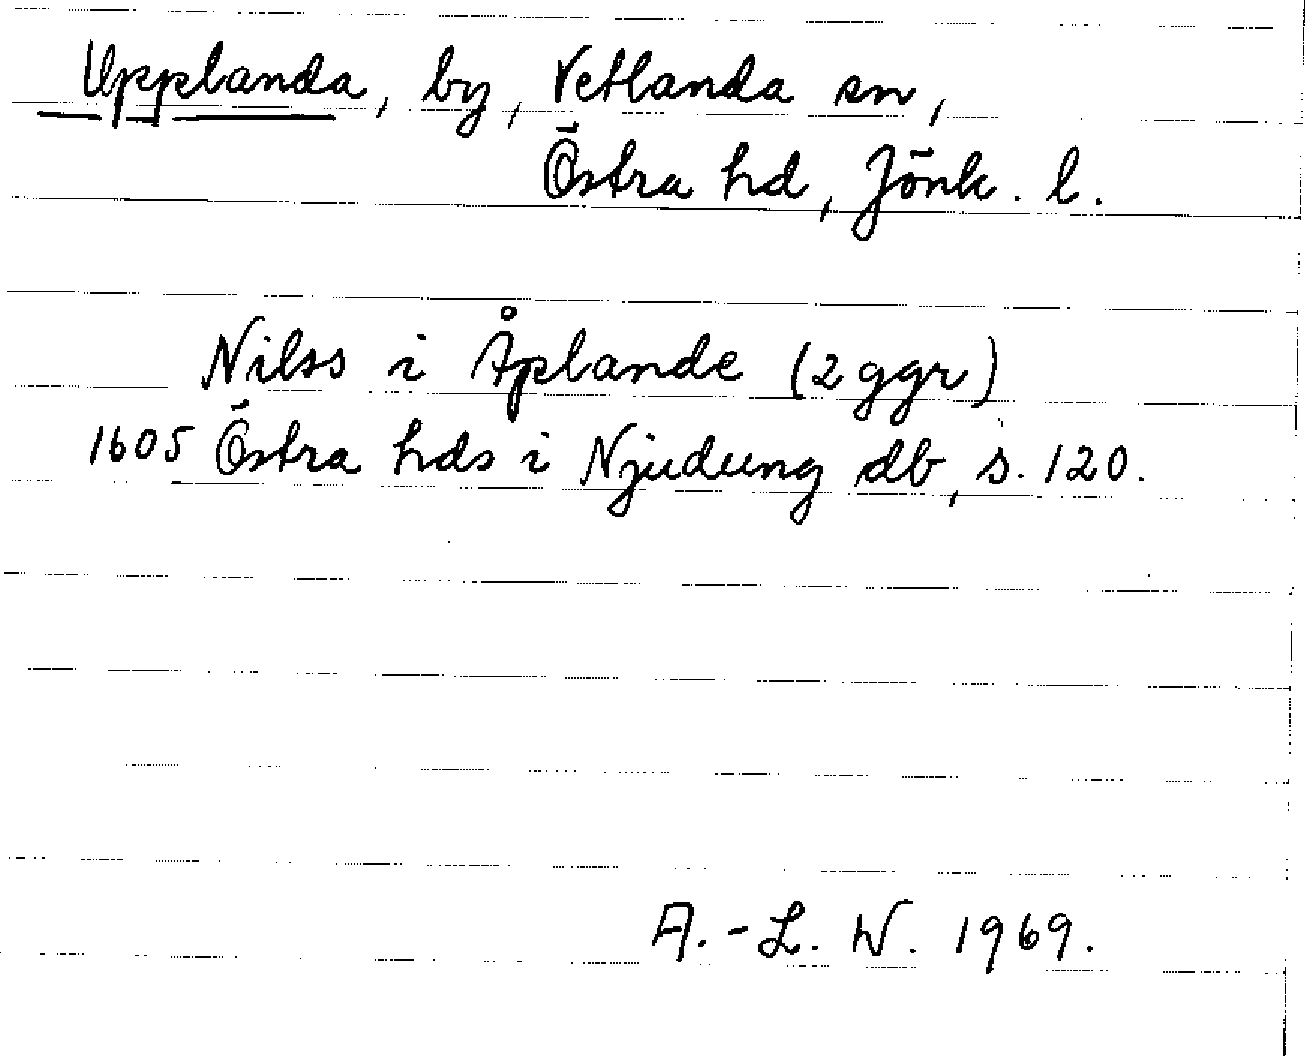 Upplanda, by, Vetlanda sn,
Östra hd, Jönk. l.
Nilss i Åplande (2 ggr)
1605 Östra hds i Njudung db, s. 120.
A.-L. W. 1969.